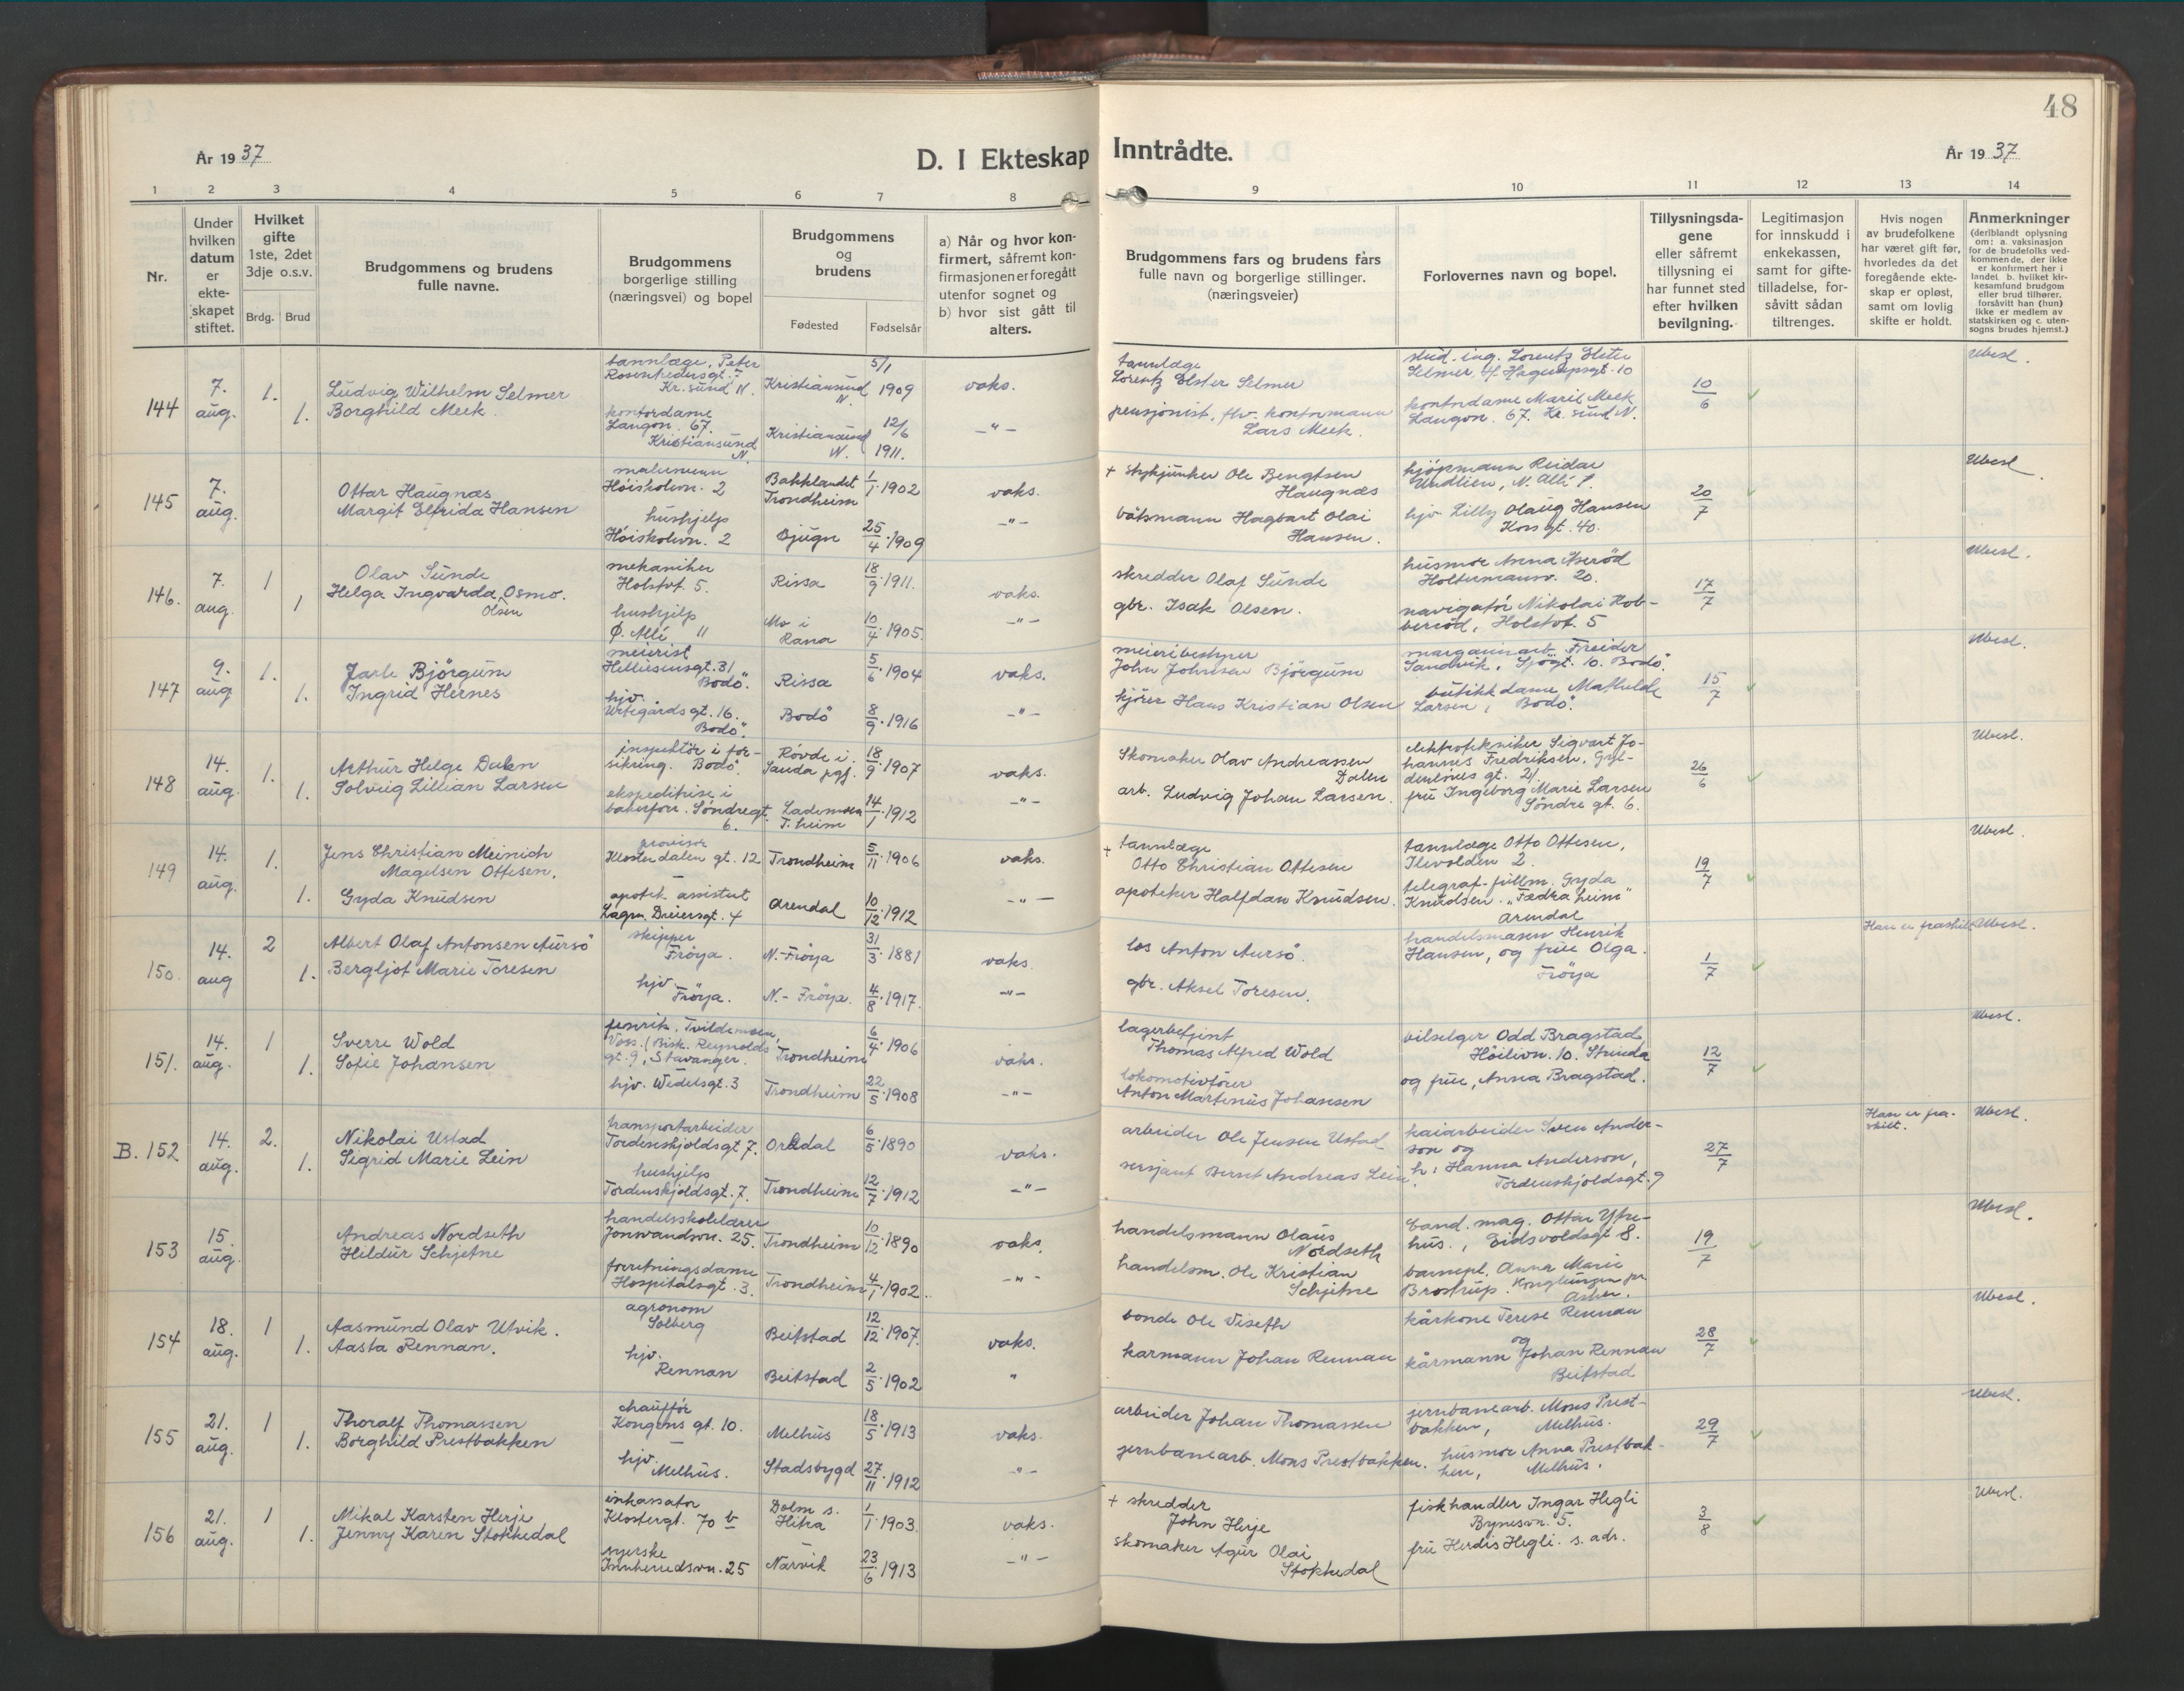 48
År 1937
D. I Ekteskap Inntrådte.
År 1937
1 2 3 4 5 6 7 8 9 10 11 12 13 14
Nr.
Under hvilken datum er ekteskapet stiftet.
Hvilket gifte 1ste, 2det 3dje o.s.v.
Brdg. Brud
Brudgommens og brudens fulle navne.
Brudgommens borgerlige stilling (næringsvei) og bopel
Brudgommens og brudens
Fødested Fødselsår
a) Når og hvor konfirmert, såfremt konfirmasjonen er foregått utenfor sognet og b) hvor sist gått til alters.
Brudgommens fars og brudens fars fulle navn og borgerlige stillinger. (næringsveier)
Forlovernes navn og bopel.
Tillysningsdagene eller såfremt tillysning ei har funnet sted efter hvilken bevilgning.
Legitimasjon for innskudd i enkekassen, samt for giftetilladelse, forsåvitt sådan tiltrenges.
Hvis nogen av brudefolkene har været gift før, hvorledes da det foregående ekteskap er opløst, samt om lovlig skifte er holdt.
Anmerkninger (deriblandt oplysning om: a. vaksinasjon for de brudefolks vedkommende, der ikke er konfirmert her i landet. b. hvilket kirkesamfund brudgom eller brud tilhører, forsåvitt han (hun) ikke er medlem av statskirken og c. utensogns brudes hjemst.)
144
7. aug.
1.
1.
Ludvig Wilhelm Selmer
Borghild Meek.
tannlæge, Peter
Kr.sund N.
kontordame
Langvn. 67.
Kristiansund N.
Kristiansund N. 5/1 1909
Kristiansund N. 12/6 1911.
vaks.
-"-
tannlæge
Lorentz Elster Selmer
pensjonist, fhv. kontormann
Lars Meek.
stud. ing. Lorentz Elster
Selmer,
kontordame Marie Meek
Langvn. 67. Kr.sund N.
10/6
Ubesl.
145
7. aug.
Ottar Haugnæs
Margit Elfrida Hansen
malersvenn
Høiskolevn. 2
hushjelp
Høiskolevn. 2
Bakklandet Trondheim 1/1 1902
Bjugn 25/4 1909
vaks.
-"-
+ Stykjunker Ole Bengtsen
Haugnæs
båtsmann Hagbart Olai
Hansen.
kjøpmann Reidar
Undlien, N. Allé 1.
hjv Lilly Olaug Hansen
Korsgt. 40.
20/7
Ubesl.
146.
7. aug.
1
1
Olav Sunde
Helga Ingvarda Osmo.
Olsen
mekaniker
Holstvt 5.
hushjelp
Ø. Allé 11
Rissa 18/9 1911.
Mo i Rana 10/4 1905.
vaks.
-"-
skredder Olaf Sunde
gbr. Isak Olsen.
husmor Anna Aserød
Holtermansv. 20.
navigatør Nikolai Hob-
bersød, Holstvt. 5
17/7
Ubesl.
147
9. aug
1.
1.
Jarle Bjørgum
Ingrid Hernes
meierist
Helliesensgt. 31
Bodø.
hjv.
Urtegårdsgt. 16.
Bodø.
Rissa 5/6 1904
Bodø 8/9 1916
vaks.
-"-
meieribestyrer
John Johnsen Bjørgum
kjører Hans Kristian Olsen
Sandvik, Sjøgt. 10. Bodø.
butikkdame Mathilde
Larsen, Bodø.
15/7
Ubesl.
148
14. aug.
1.
1.
Arthur Helge Dalen
Solveig Lillian Larsen
inspektør i for-
sikring. Bodø.
ekspeditrise i
bakerforr. Søndregt.
6.
Røvde i Sanda pgj. 18/9 1907
Lademoen T.heim 14/1 1912
vaks.
-"-
Skomaker Olav Andreassen
Dalen
arb. Ludvig Johan Larsen.
elektrotekniker Sigvart Jo-
hannes Fredriksen, Gyl-
denløves gt. 21.
fru Ingeborg Marie Larsen
Søndre gt. 6.
26/6
Ubesl.
149
14. aug.
1.
1.
Jens Christian Meinich
Magelsen Ottesen.
Gyda Knudsen
provisor
Klosterdalen gt. 12
apotek. assistent
Lagm. Dreiersgt. 4
Trondheim 5/11 1906
Arendal 10/12 1912
vaks.
-"-
+ tannlæge
Otto Christian Ottesen
apoteker Halfdan Knudsen.
tannlæge Otto Ottesen,
Ilevolden 2.
telegraf-fullm. Gyda
Knudsen. "Fædraheim"
Arendal
19/7
Ubesl.
150.
14. aug
2
1.
Albert Olaf Antonsen Aursø
Bergljot Marie Toresen
skipper
Frøya.
hjv.
Frøya.
N.-Frøya 31/3 1881
N.-Frøya. 4/8 1917.
vaks.
-"-
los Anton Aursø.
gbr. Aksel Toresen.
handelsmann Henrik
Hansen, og frue Olga.
Frøya
1/7
Han er fraskilt
Ubesl.
151.
14. aug.
1
1.
Sverre Wold
Sofie Johansen
fenrik, Tvildemoen,
Voss. (Bisk. Reynolds
gt. 9, Stavanger.
hjv. Wedelsgt. 3
Trondheim 6/4 1906
Trondheim 22/5 1908
vaks.
-"-
lagerbetjent
Thomas Alfred Wold
lokomotivfører
Anton Martinius Johansen
bilselger Odd Bragstad
Høilivn. 10. Strinda
og frue, Anna Bragstad.
12/7
Ubesl.
B. 152
14. aug.
2.
1.
Nikolai Ustad
Sigrid Marie Lein
transportarbeider
Tordenskjoldsgt 7.
hushjelp
Tordenskjoldsgt. 7.
Orkdal 6/5 1890
Trondheim 12/7 1912
vaks.
-"-
arbeider Ole Jensen Ustad
sersjant Bernt Andreas Lein.
kaiarbeider Sven Ander-
son og
h: Hanna Anderson,
Tordenskjoldsgt. 9
27/7
Han er fra-
skilt.
Ubesl.
153
15. aug.
Andreas Nordseth
Hildur Schjetne
handelsskolelærer
Jonsvandsvn. 25.
forretningsdame
Hospitalsgt. 3.
Trondheim 10/12 1890
Trondheim 4/1 1902.
vaks.
-"-
handelsmann Olaus
Nordseth
handelsm. Ole Kristian
Schjetne
cand. mag. Ottar Ytre-
hus., Eidsvoldsgt 8.
barnepl. Anna Marie
Brostrup. Konglungen pr
Asker.
19/7
Ubesl.
154
18. aug.
1
1.
Aasmund Olav Utvik.
Aasta Rennan.
agronom
Solberg
hjv.
Rennan
Beitstad 12/12 1907.
Beitstad 2/5 1902
vaks.
"
bonde Ole Viseth
karmann Johan Rennan
kårkone Terese Rennan
og
kårmann Johan Rennan
Beitstad
28/7
Ubesl.
155
21. aug.
1
1.
Thoralf Thomassen
Borghild Prestbakken
chauffør
Kongens gt. 10.
hjv.
Melhus.
Melhus 18/5 1913
Stadsbygd 27/11 1912
vaks.
-"-
arbeider Johan Thomassen
jernbanearb. Mons Prestbakken.
jernbanearb. Mons Prest-
bakken, Melhus.
husmor Anna Prestbak-
ken, Melhus.
29/7
Ubesl.
156
21. aug.
1
1.
Mikal Karsten Herje
Jenny Karen Stokkedal
inkassator
Klostergt. 70 b
syerske
Innherredsvn. 25
Dolm s. Hitra 1/1 1903.
Narvik 23/6 1913
vaks.
-"-
+ skredder
John Herje
skomaker Agur Olai
Stokkedal
fiskhandler Ingar Hegli
Bynesvn. 5.
fru Herdis Hegli. s. adr.
3/8
Ubesl.